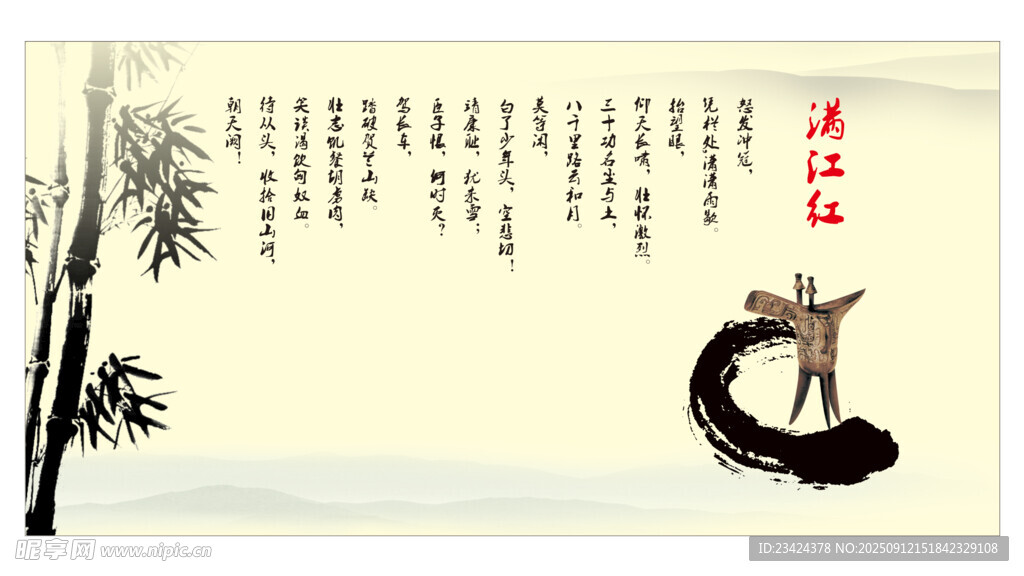 满江红
怒发冲冠，
凭栏处潇潇雨歇。
抬望眼，
仰天长啸，壮怀激烈。
三十功名尘与土，
八千里路云和月。
莫等闲，
白了少年头，空悲切！
靖康耻，犹未雪；
臣子恨，何时灭？
驾长车，
踏破贺兰山缺。
壮志饥餐胡虏肉，
笑谈渴饮匈奴血。
待从头，收拾旧山河，
朝天阙！
昵享网 www.nipic.cn
ID:23424378 NO:20250912151842329108